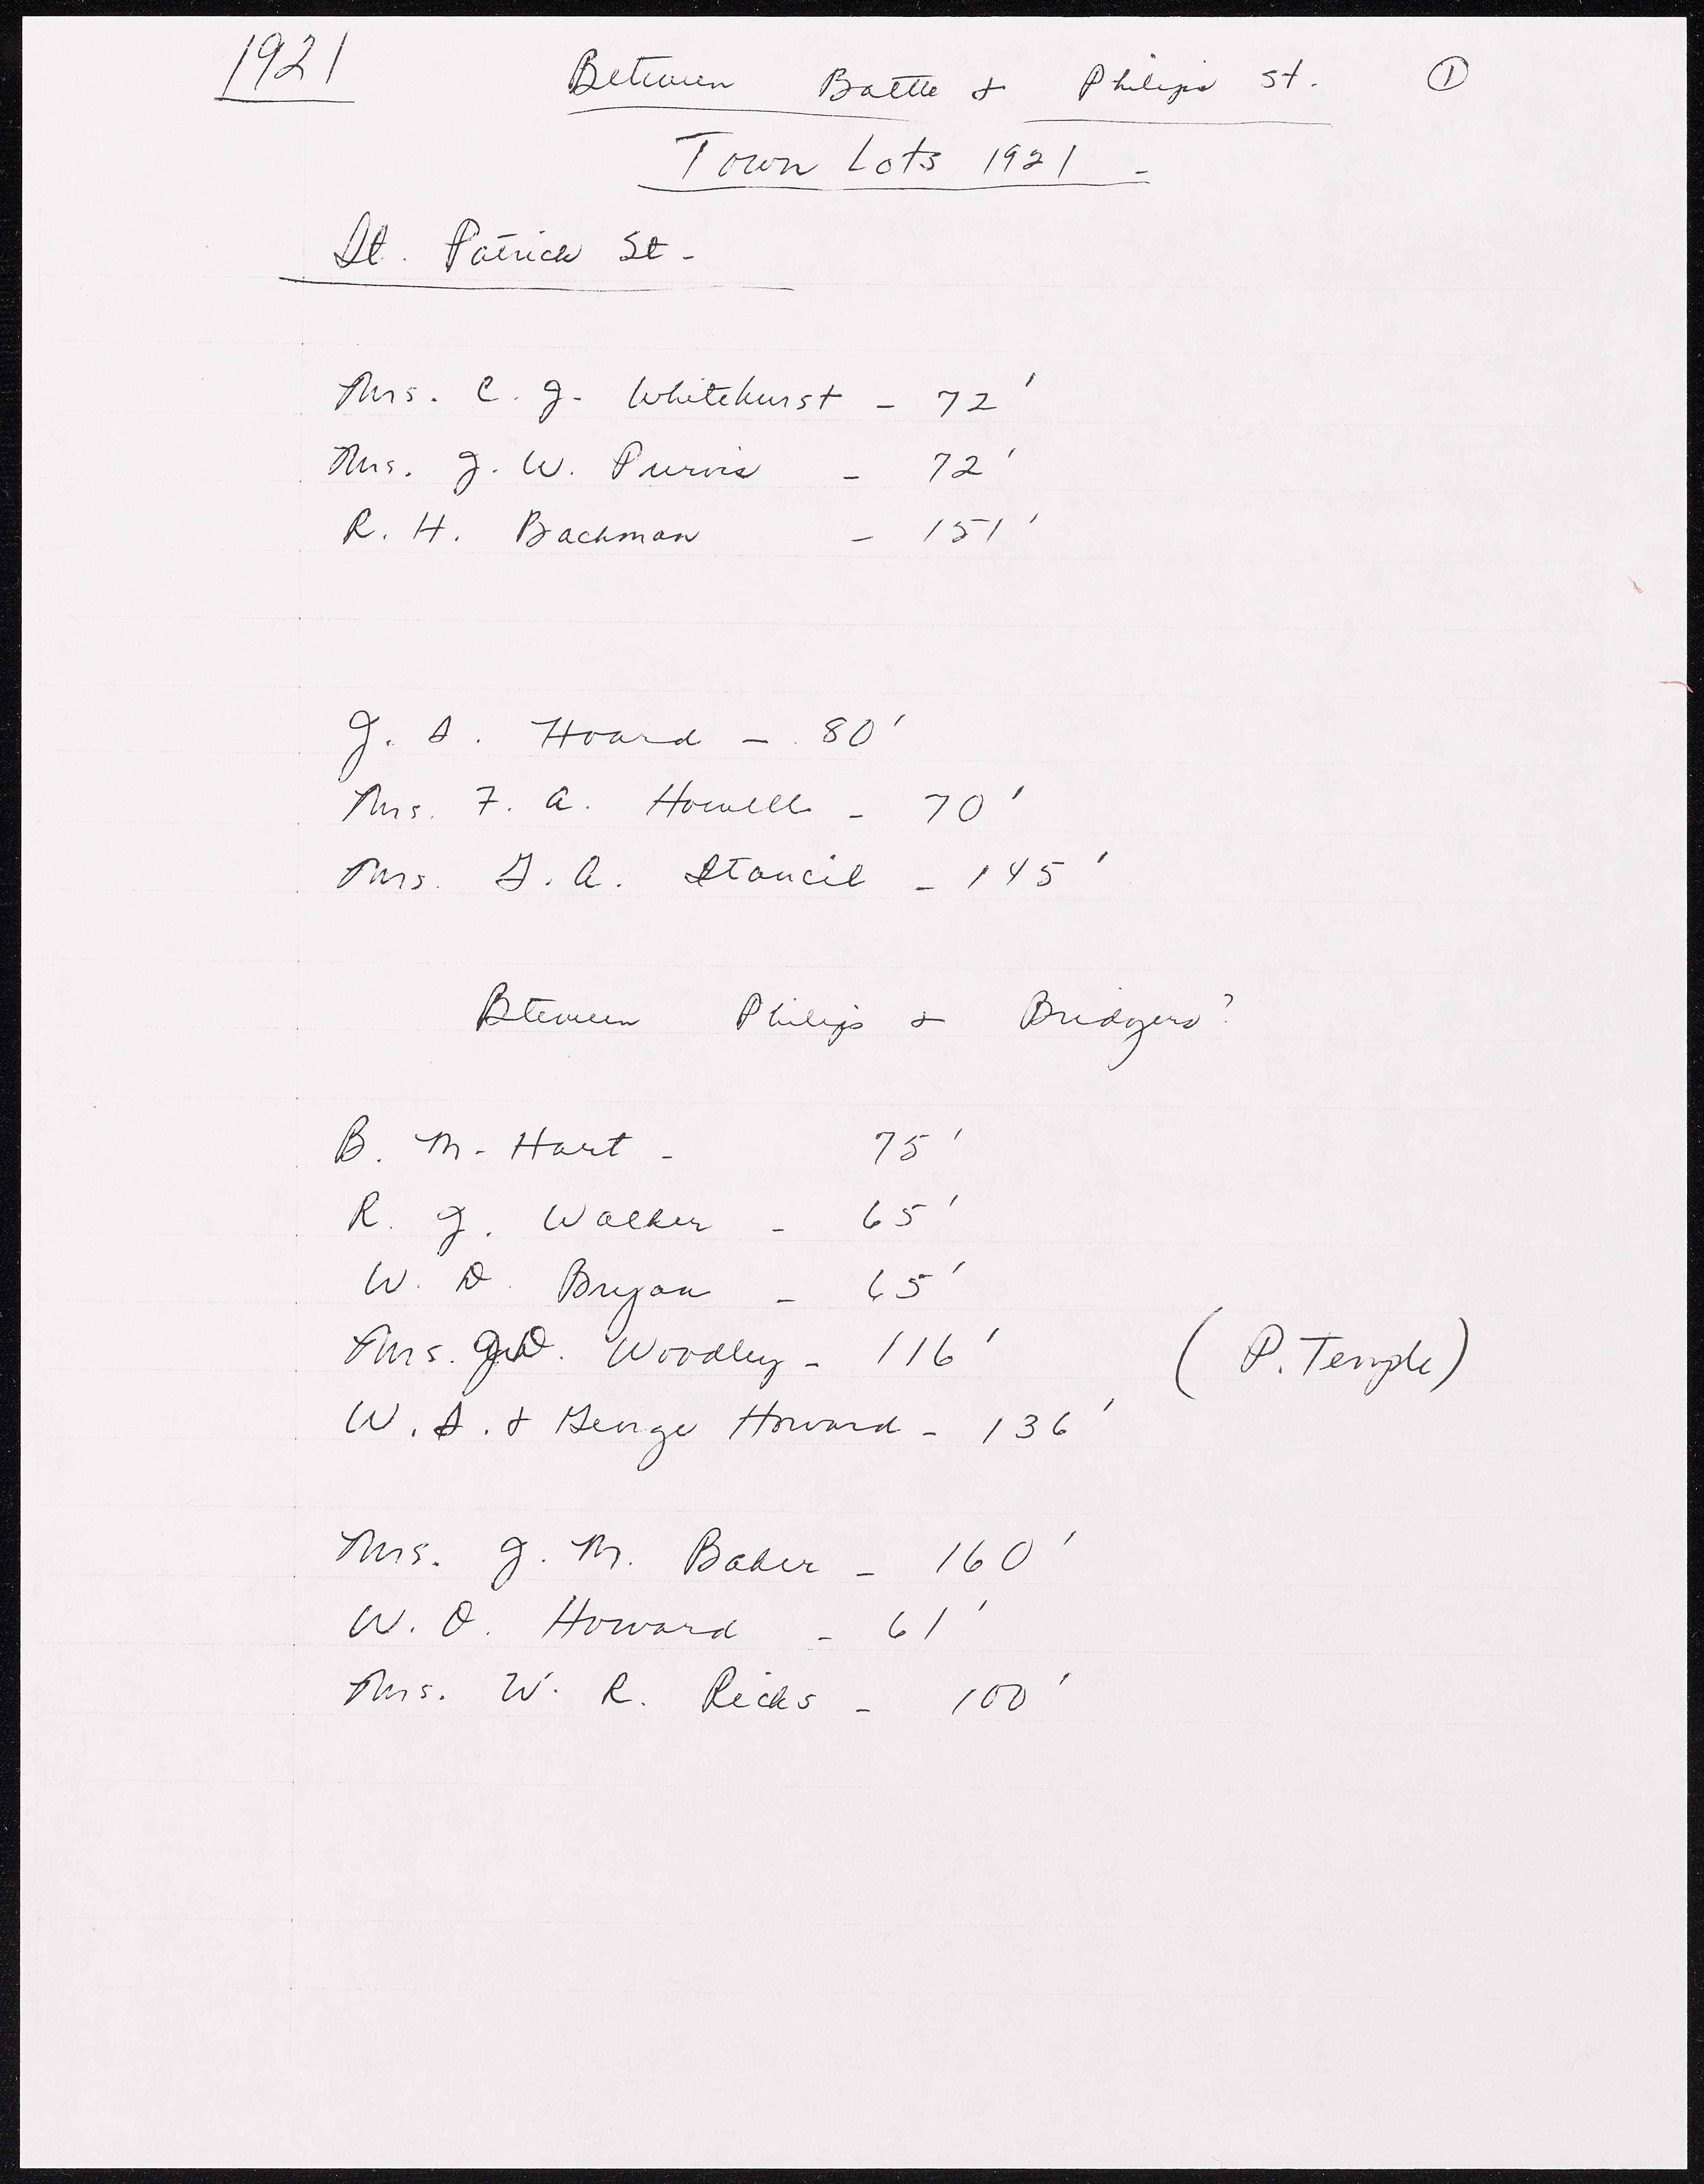 1921 Between Battle & Philips St. ①
Town Lots 1921 -
St. Patrick St -
Mrs. C. J. Whitehurst - 72'
Mrs. J. W. Purvis - 72'
R. H. Bachman - 151'
J. S. Hoard - 80'
Mrs. F. A. Howell - 70'
Mrs. G. A. Stancil - 145'
Bteween Philips & Bridgers?
B. M. Hart - 75'
R. J. Walker - 65'
W. D. Bryan - 65'
Mrs. Woodley - 116' (P. Temple)
W. S. & George Howard - 136'
Mrs. J. M. Baker - 160'
W. O. Howard - 61'
Mrs. W. R. Ricks - 100'